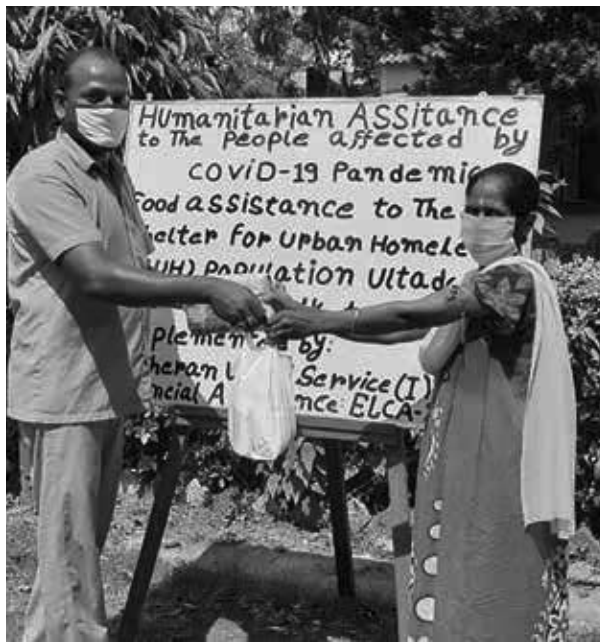 Humanitarian Assitance
to The People affected by
COVID-19 Pandemic
Food assistance to The
Shelter for Urban Homele
UH) Population Ultada
plemented by:
theran Service (I)
ncial A nce ELCA-